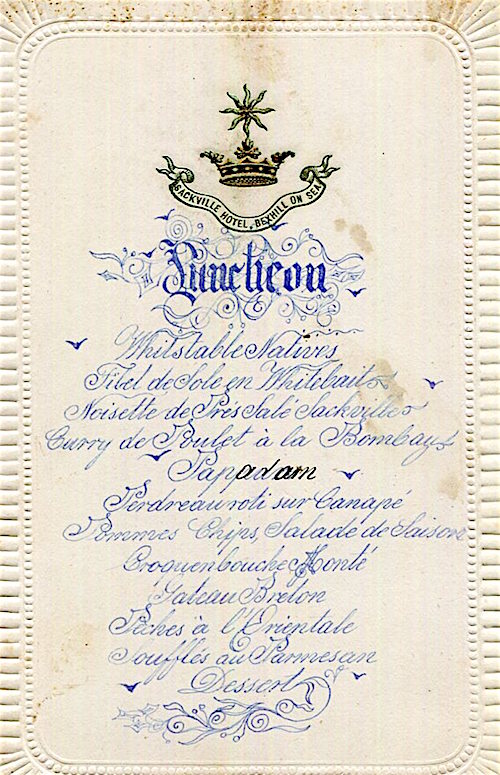 SACKVILLE HOTEL, BEXHILL ON SEA
Luncheon
Whitstable Natives
Filet de Sole en Whitebait
Noisette de Prés Salé Sackville
Curry de Poulet à la Bombay
Pappadam
Perdreau roti sur Canapé
Pommes Chips, Salade de Saison
Croquenbouche Monté
Gateau Breton
Pêches à l'Orientale
Soufflés au Parmesan
Dessert